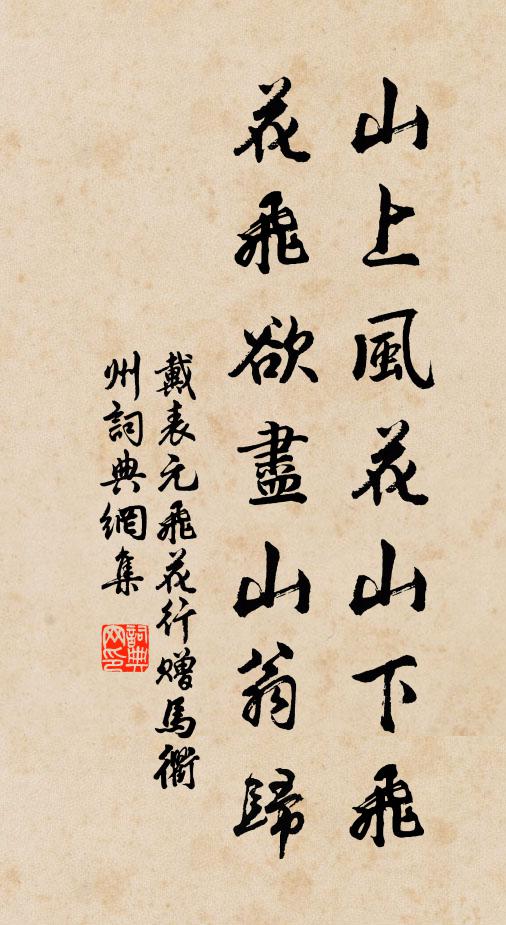 山上風花山下飛
花飛欲盡山翁歸
戴表元飛花行贈馬衢
州詞典網集
詞典
网印